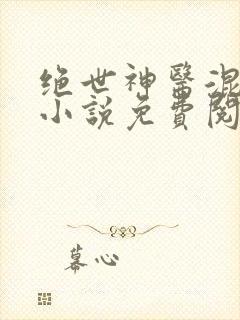 绝世神醫混
小說免費閱
幕心